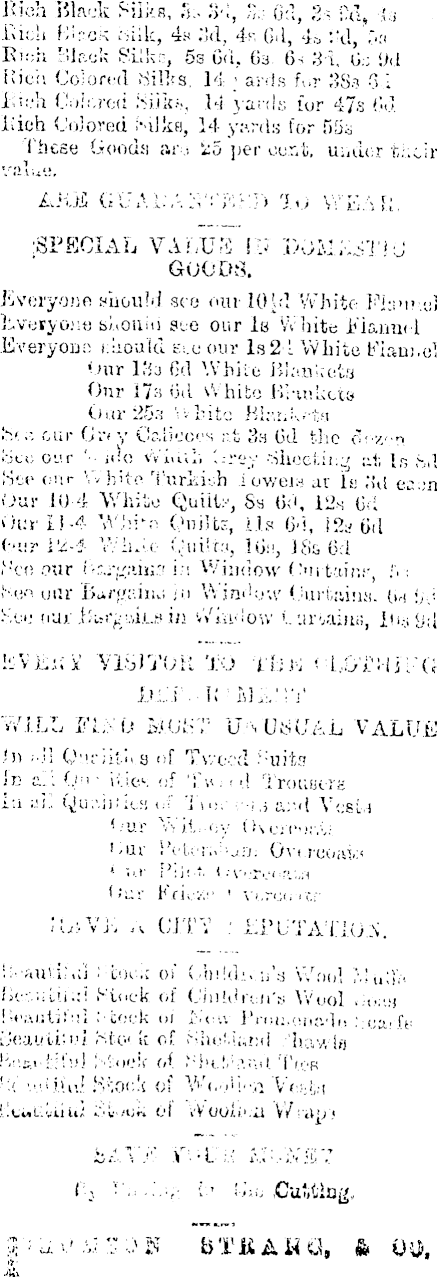 Rich Black Silks, 3s 3d, 3s 6d, 3s 9d, 4s
Rich Black Silk, 4s 3d, 4s 6d, 4s 9d, 5s
Rich Black Silks, 5s 6d, 6s, 6s 3d, 6s 9d
Rich Colored Silks, 14 yards for 38s 6d
Rich Colored Silks, 14 yards for 47s 6d
Rich Colored Silks, 14 yards for 55s
These Goods are 25 per cent. under their
value.
ARE GUARANTEED TO WEAR.
SPECIAL VALUE IN DOMESTIC
GOODS.
Everyone should see our 10½d White Flannel
Everyone should see our 1s White Flannel
Everyone should see our 1s 2d White Flannel
Our 13s 6d White Blankets
Our 17s 6d White Blankets
Our 25s White Blankets
See our Grey Calicoes at 3s 6d the dozen
See our Wide Width Grey Sheeting at 1s 8d
See our White Turkish Towels at 1s 3d each
Our 10-4 White Quilts, 8s 6d, 12s 6d
Our 11-4 White Quilts, 11s 6d, 12s 6d
Our 12-4 White Quilts, 16s, 18s 6d
See our Bargains in Window Curtains,
See our Bargains in Window Curtains, 6s 9d
See our Bargains in Window Curtains, 10s 9d
EVERY VISITOR TO THE CLOTHING
DEPARTMENT
WILL FIND MOST UNUSUAL VALUE
In all Qualities of Tweed Suits
In all Qualities of Tweed Trousers
In all Qualities of Trousers and Vests
Our Witney Overcoats
Our Petersham Overcoats
Our Pilot Overcoats
Our Frieze Overcoats
HAVE A CITY REPUTATION.
Beautiful Stock of Children's Wool Muffs
Beautiful Stock of Children's Wool
Beautiful Stock of New Promenade Scarfs
Beautiful Stock of Shetland Shawls
Beautiful Stock of Shetland Ties
Beautiful Stock of Woollen Vests
Beautiful Stock of Woollen Wraps
SAVE YOUR MONEY
By the Cutting,
THOMSON STRANG, & CO.